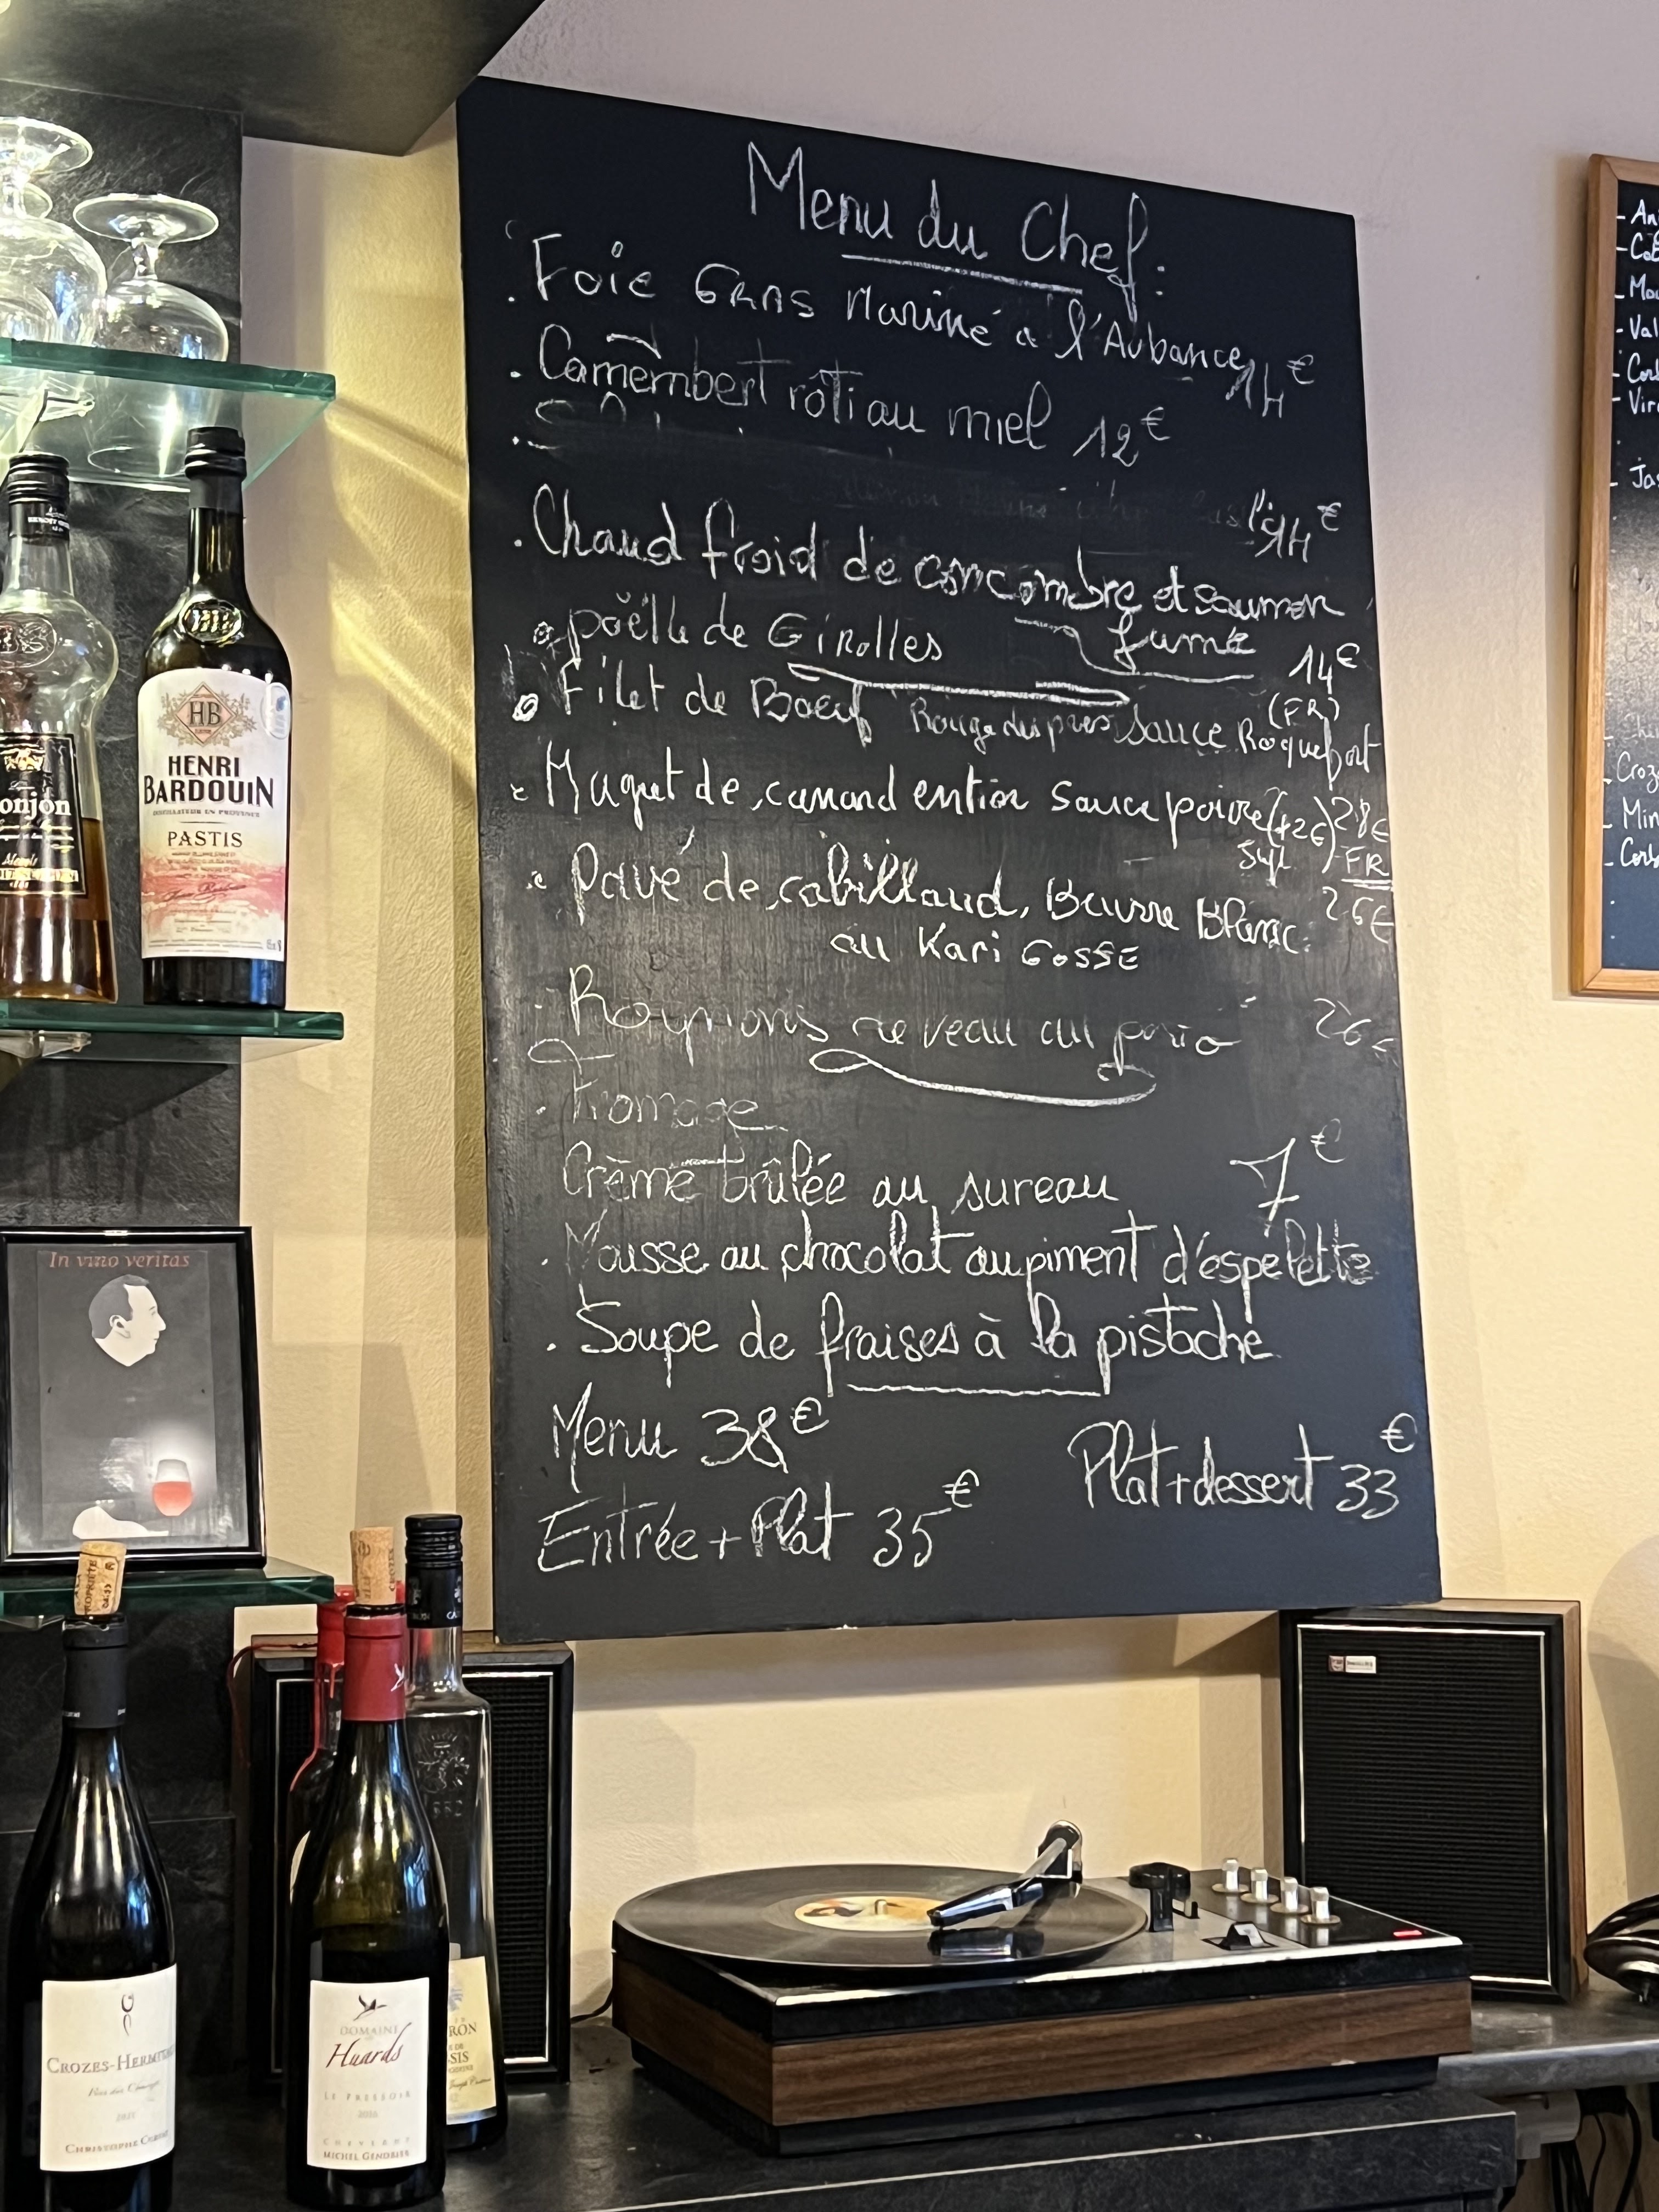 Menu du Chef :
. Foie Gras Mariné a l'Aubance 14€
. Camembert rôti au miel 12€
14€
. Chaud froid de concombre et saumon
fumé 14€
poëlle de Girolles
Filet de Boeuf Rouge des pres sauce Roquefort
(FR)
Magret de canard entier sauce poivre (+2€) 28€
Supl FR
Pavé de cabillaud, Beurre Blanc. 26€
au Kari Gosse
Rognons de veau au porto 26€
. Fromage
Crème brûlée au sureau 7€
. Mousse au chocolat au piment d'espelette
. Soupe de fraises à la pistache
Menu 38€
Plat+dessert 33€
Entrée + Plat 35€
HB
HENRI
BARDOUIN
DISTILLATEUR EN PROVENCE
PASTIS
onjon
In vino veritas
CROZES-HERMITAGE
2021
CHRISTOPHE
DOMAINE
Huards
LE PRESSOIR
2016
CHEVERNY
MICHEL GENDRIER
RON
SIS
- Mou
- Val
- Vir
- Jas
Croz
- Min
- Corb